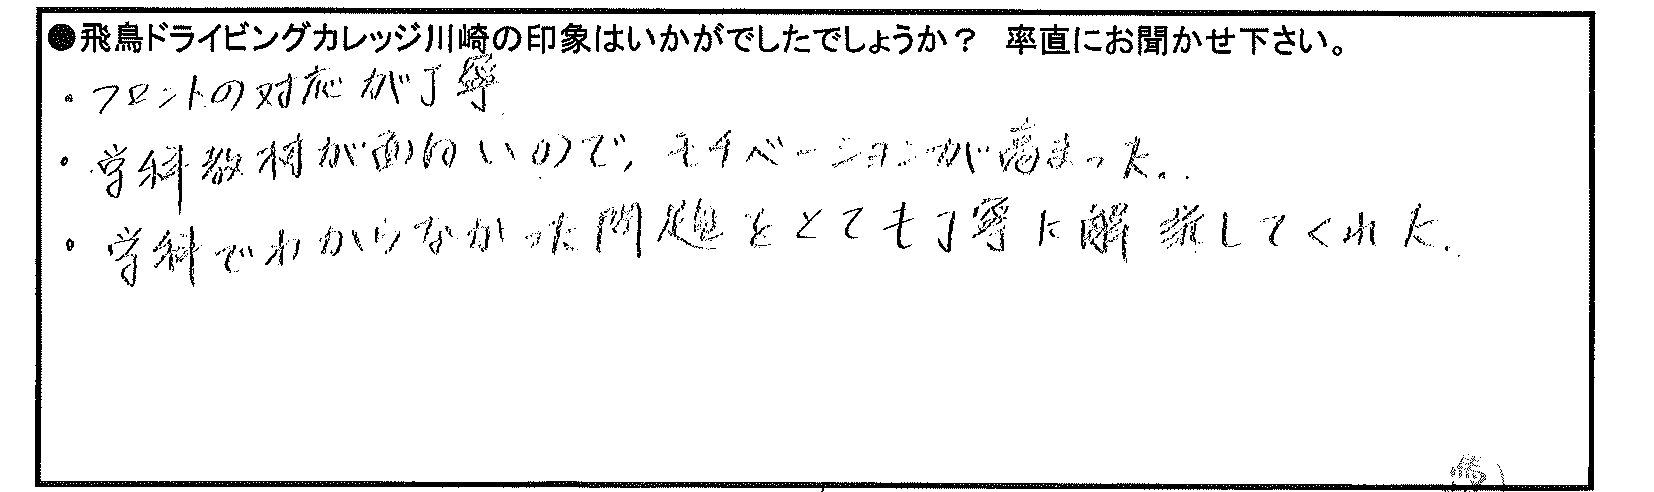 ●飛鳥ドライビングカレッジ川崎の印象はいかがでしたでしょうか？ 率直にお聞かせ下さい。
・フロントの対応が丁寧
・学科教材が面白いので、モチベーションが高まった。
・学科でわからなかった問題をとても丁寧に解説してくれた。